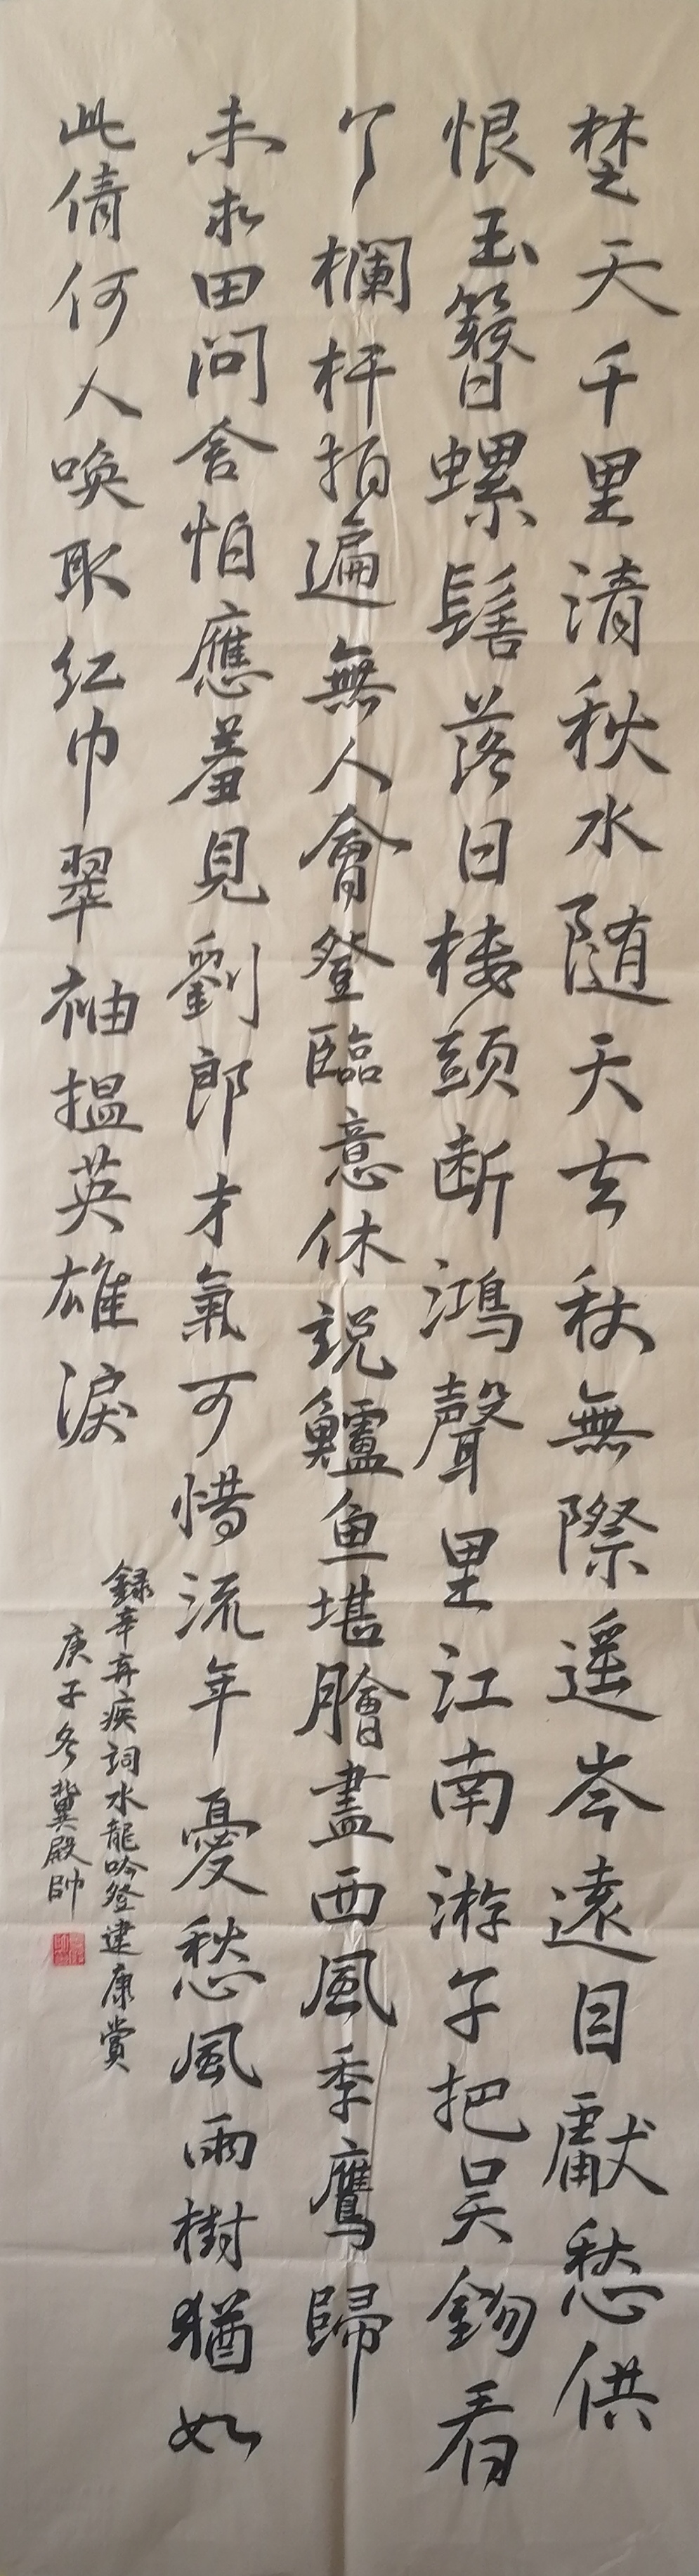 楚天千里清秋水随天去秋無際遥岑遠目獻愁供
恨玉簪螺髻落日楼頭断鴻聲里江南游子把吴鉤看
了欄杆拍遍無人會登臨意休説鱸鱼堪膾盡西風季鹰歸
未求田问舍怕應羞見劉郎才氣可惜流年憂愁風雨樹猶如
此倩何人唤取红巾翠袖揾英雄淚
録辛弃疾詞水龍吟登建康賞
庚子冬冀殿帥